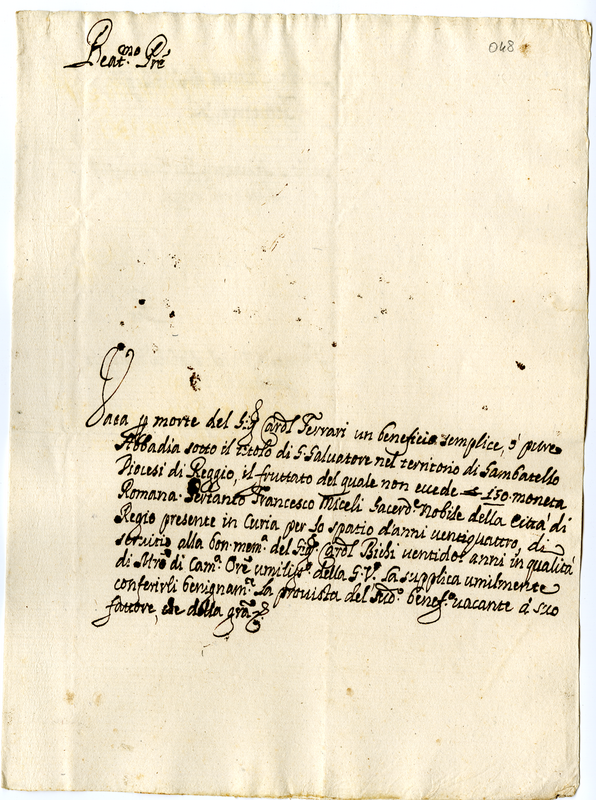 048
Beat.mo Pre
Vaca p morte del Sig.r Card.l Ferrari un beneficio semplice, ò pure
Abbadia sotto il titolo di S. Salvatore nel territorio di Sambatello
Diocesi di Reggio, il fruttato del quale non eccede 130 moneta
Romana. Pertanto Francesco Miceli Sacerd.e Nobile della Città di
Regio presente in Curia per lo spatio d'anni ventiquattro, di
servitio alla bon: mem.a del Sig.r Card.l Bichi ventidoi anni in qualità
di Mro di Cam.a Ore umiliss.o della S. V.a la supplica umilmente
conferirli benignam.te la provista del sud.o benef.o vacante à suo
fattore, che della gra